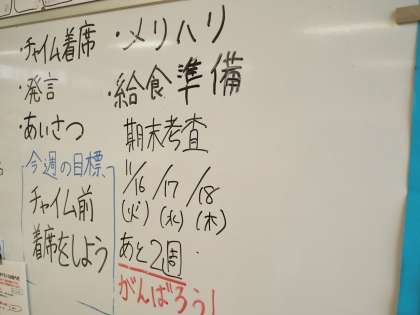 ・チャイム着席
・発言
・あいさつ
・メリハリ
・給食準備
今週の目標
チャイム前
着席をしよう
期末考査
11/16 /17 /18
(火) (水) (木)
あと2週
がんばろう!